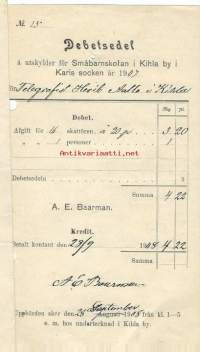 № 15
Debetsedel
å utskylder för Småbarnskolan i Kihla by i
Karis socken år 1907
för Telegrafist Herik Aalto i Kihla
Debet.
Afgift för 16 skattören à 20 p. 3 20
" " 1 personer 1
Debetsedeln 2
Summa 4 22
A. E. Baarman.
Kredit.
Betalt kontant den 28/9 1908 4 22
Summa
A E Baarman
Uppbörden sker den 28 September kl. 1—5
e. m. hos undertecknad i Kihla by.
www.antikvaari.fi